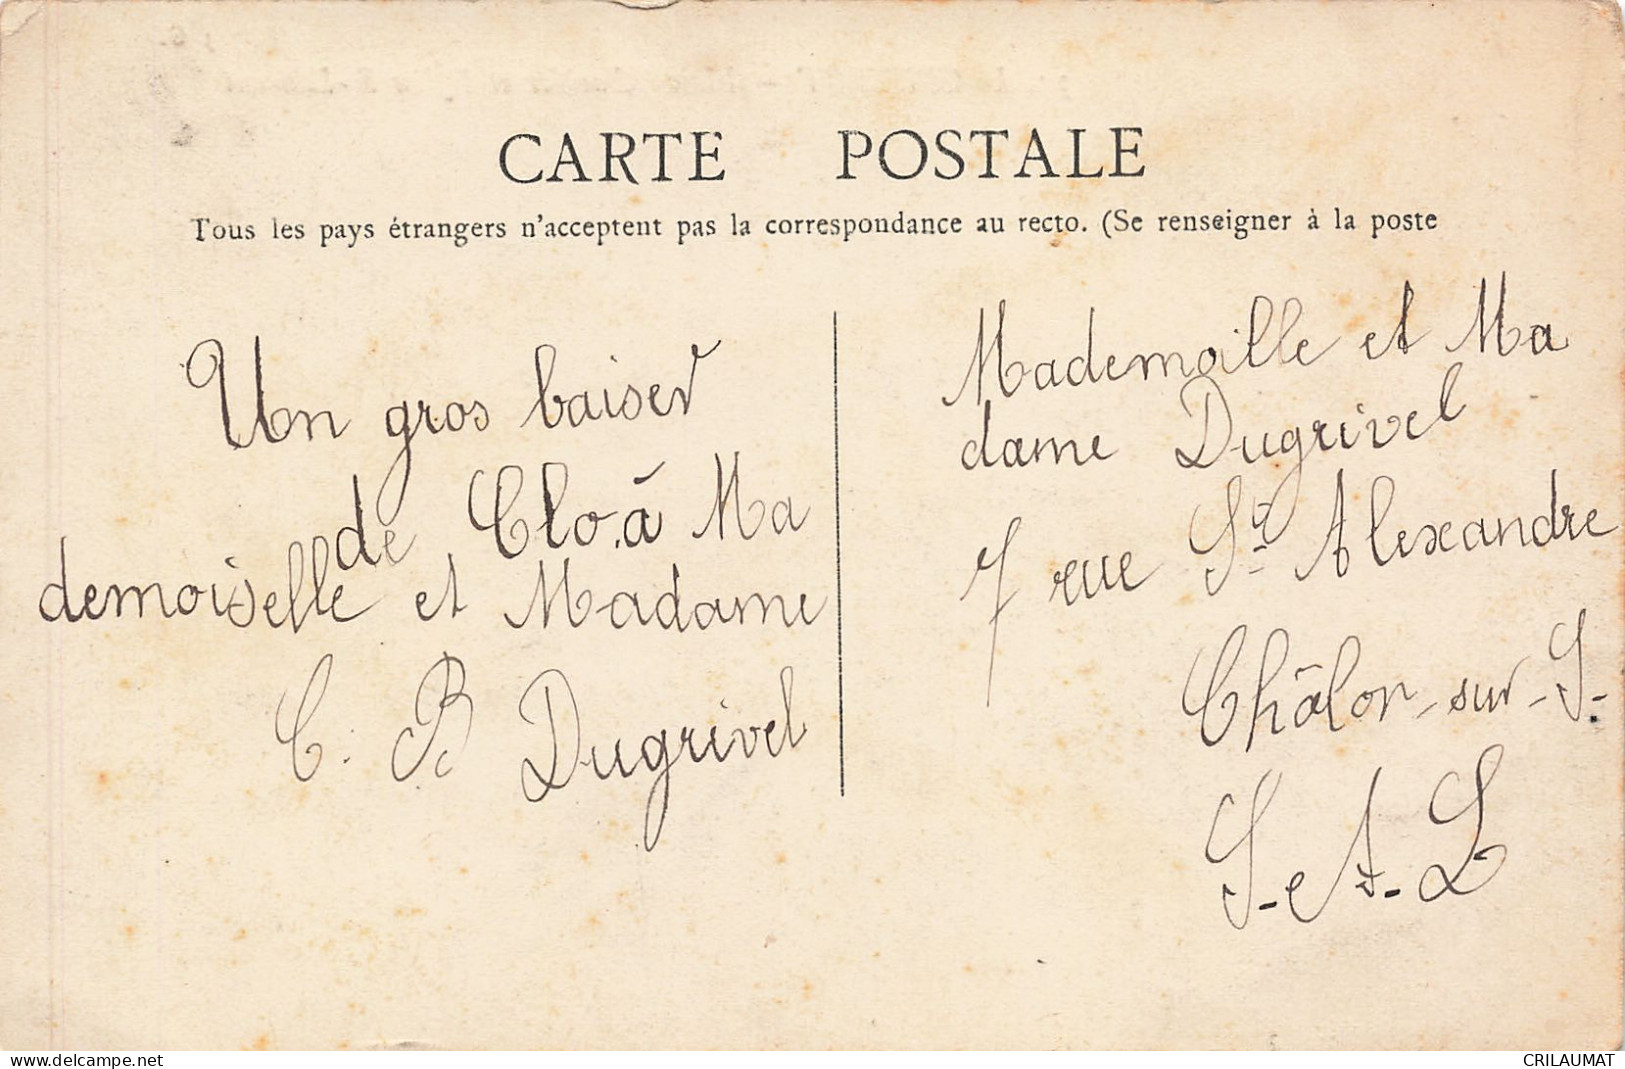 CARTE POSTALE
Tous les pays étrangers n'acceptent pas la correspondance au recto. (Se renseigner à la poste
Un gros baiser
de Clo. à Ma
demoiselle et Madame
C. B Dugrivel
Mademoille et Ma
dame Dugrivel
7 rue St. Alexandre
Châlon-sur-S.
S.-et-L
www.delcampe.net
CRILAUMAT